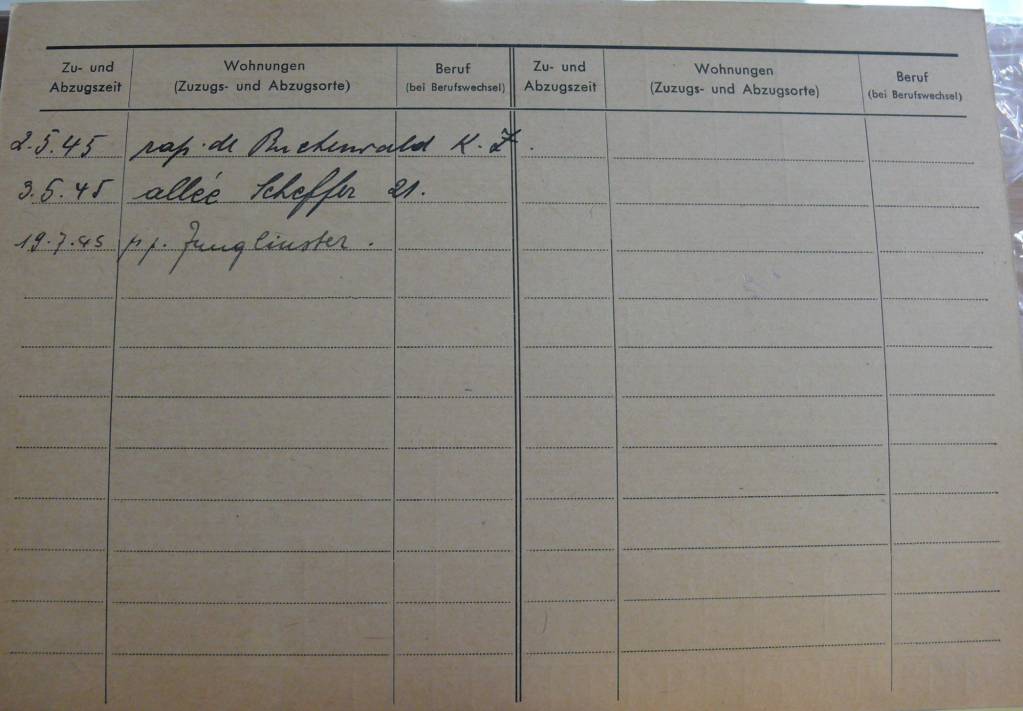 Zu- und Abzugszeit Wohnungen (Zuzugs- und Abzugsorte) Beruf (bei Berufswechsel) Zu- und Abzugszeit Wohnungen (Zuzugs- und Abzugsorte) Beruf (bei Berufswechsel)
2.5.45 rap. de Buchenwald K.Z.
3.5.45 allée Scheffer 21.
19.7.45 p p. Junglinster.